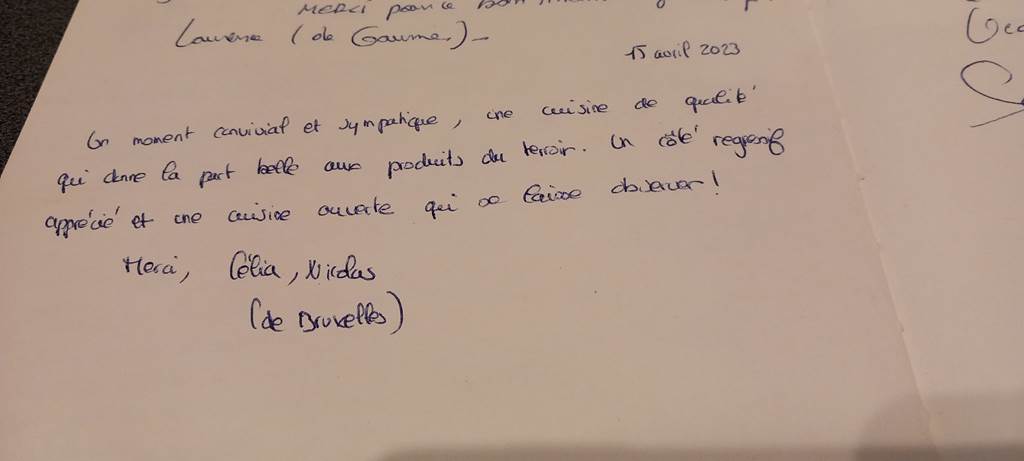 Merci pour ce bon
Laurence (de Gaume)-
15 avril 2023
Un moment convivial et sympatique, une cuisine de qualité
qui donne la part belle aux produits du terroir. Un côté
apprécié et une cuisine ouverte qui se laisse observer!
Merci, Célia, Nicolas
(de Bruxelles)